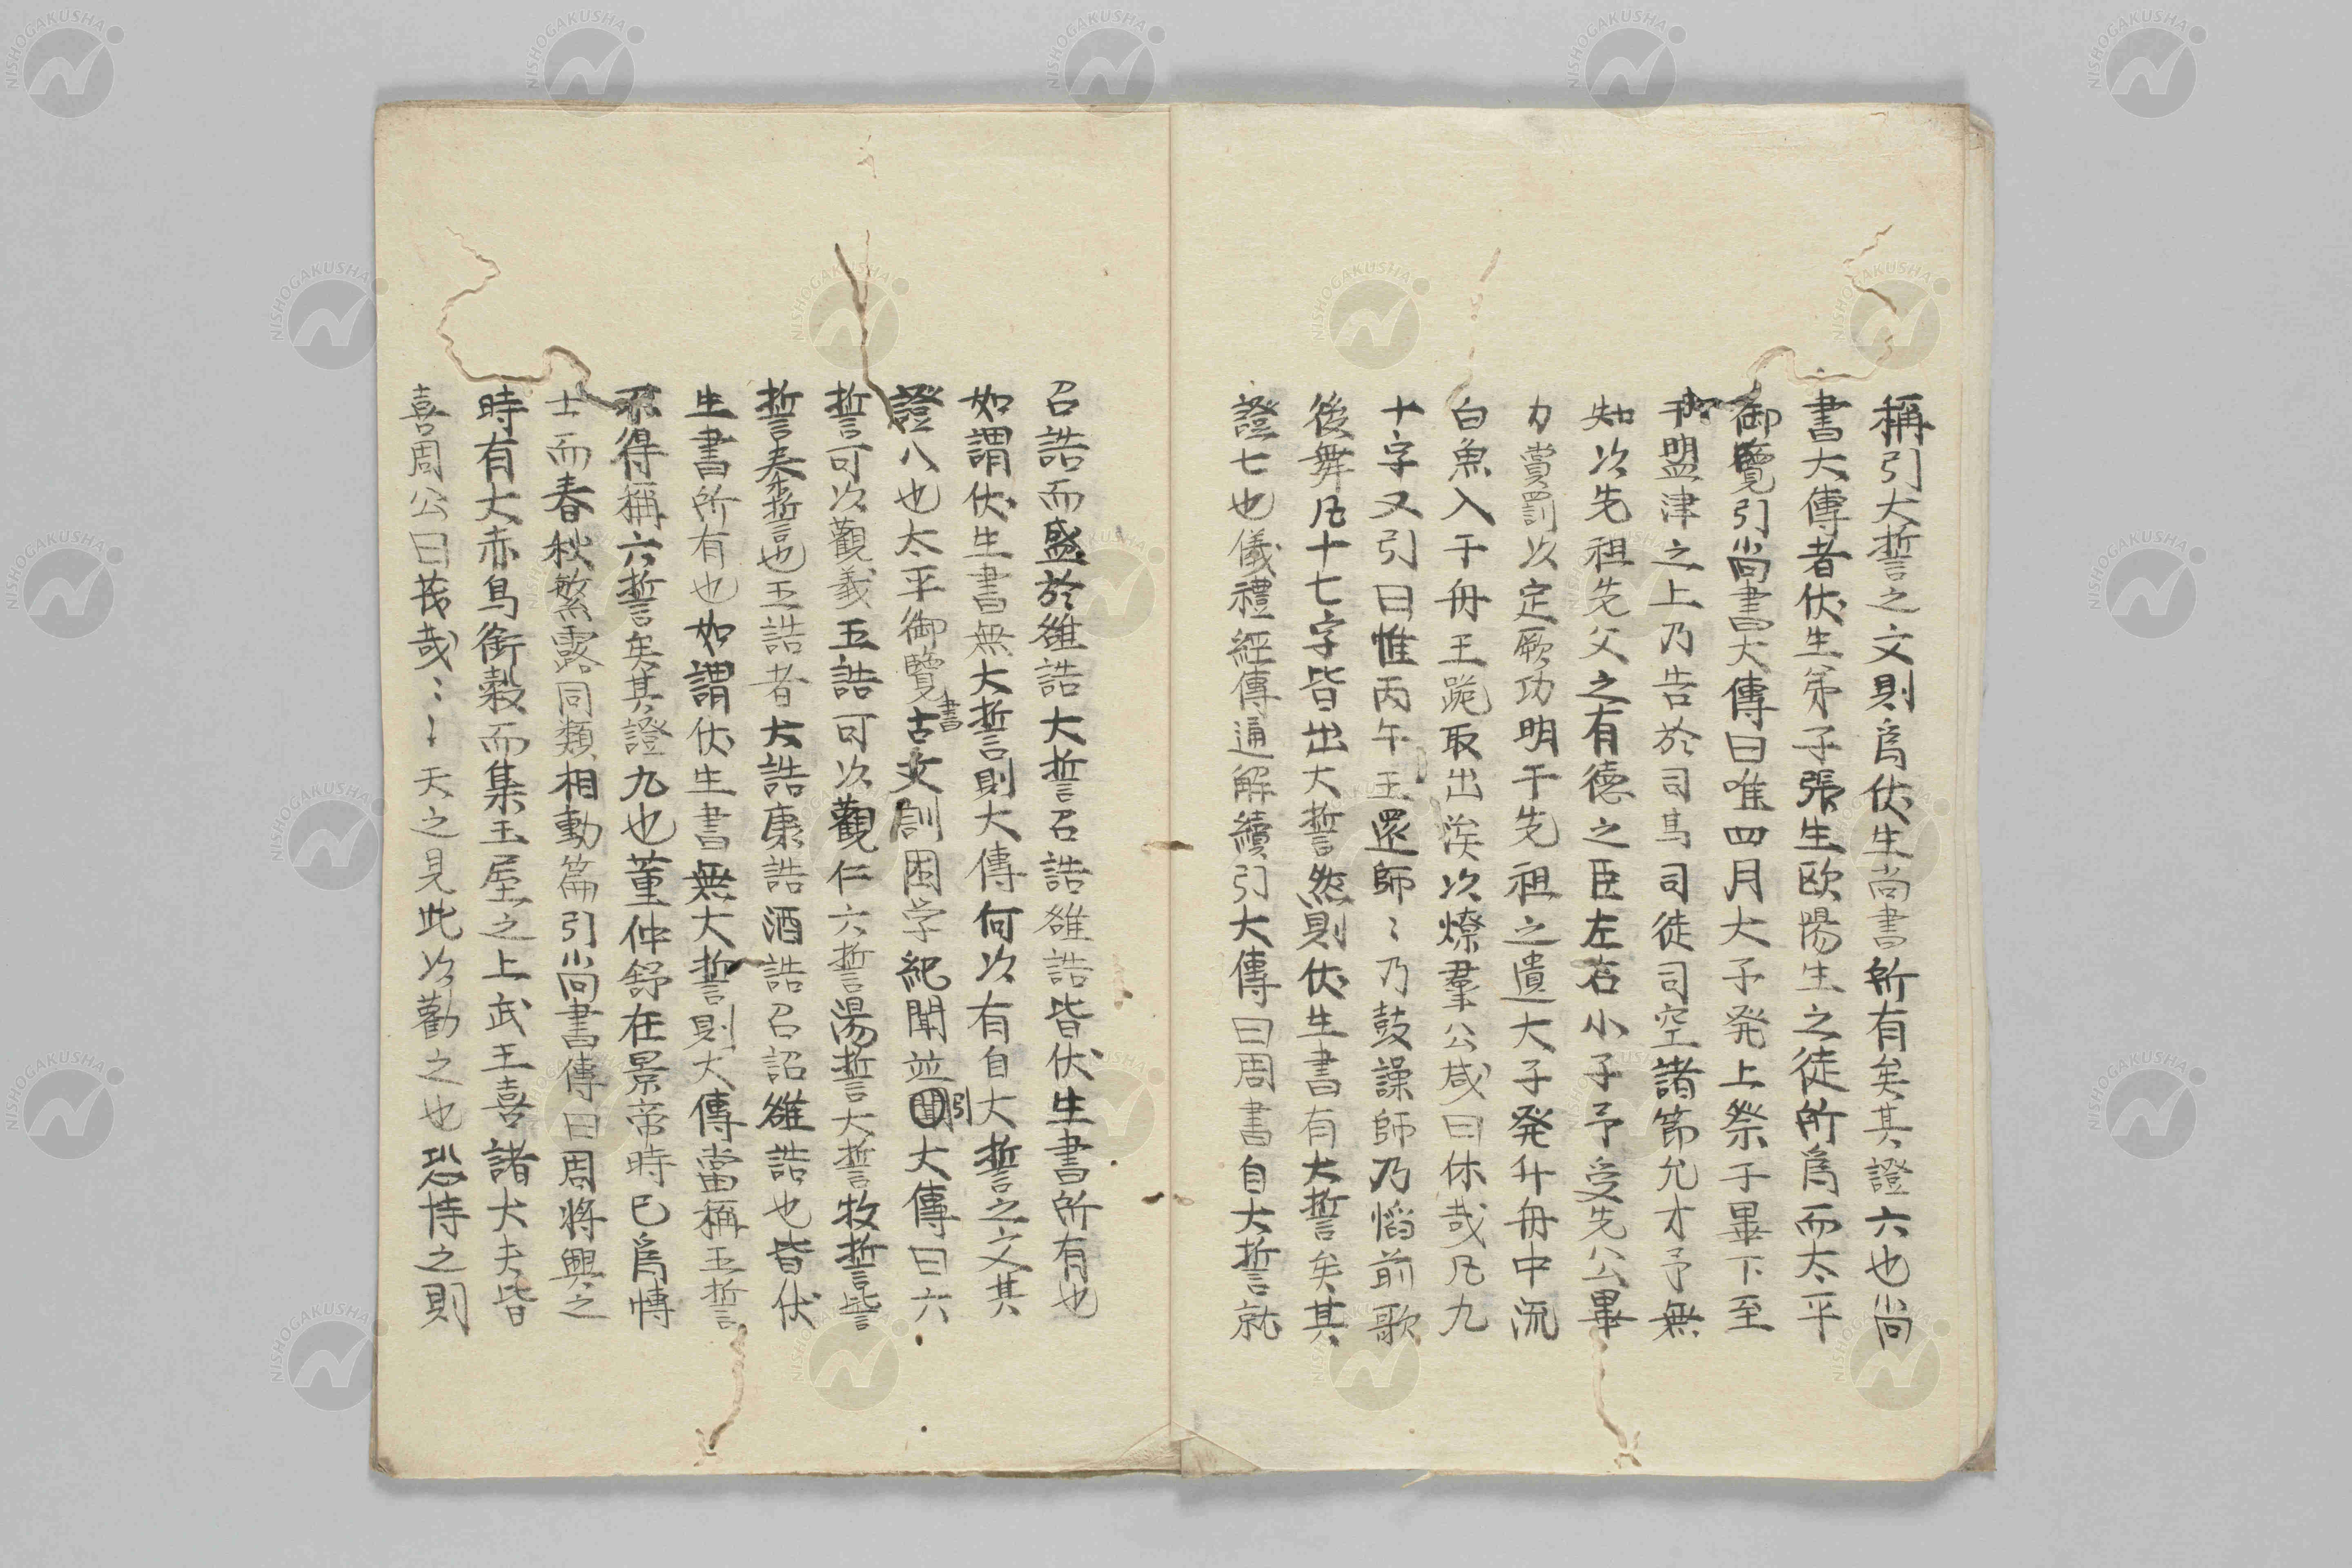 稱引大誓之文則爲伏生尚書所有矣其證六也尚
書大傳者伏生弟子張生歐陽生之徒所爲而太平
御覽引尚書大傳曰唯四月大子発上祭于畢下至
于盟津之上乃告於司馬司徒司空諸節允才予無
知以先祖先父之有德之臣左右小子予受先公畢
力賞罰以定厥功明于先祖之遺大子発升舟中流
白魚入于舟王跪取出涘以燎羣公咸曰休哉凡九
十字又引曰惟丙午王還師〻乃鼓譟師乃慆前歌
後舞凡十七字皆出大誓然則伏生書有大誓矣其
證七也儀禮經傳通解續引大傳曰周書自大誓就
召誥而盛於雒誥大誓召誥雒誥皆伏生書所有也
如謂伏生書無大誓則大傳何以有自大誓之文其
證八也太平御覽書古文訓困学紀聞並引大傳曰六
誓可以觀義五誥可以觀仁六誓湯誓大誓牧誓誓
誓秦誓也五誥者大誥康誥酒誥召詔雒誥也皆伏
生書所有也如謂伏生書無大誓則大傳當稱五誓
不得稱六誓矣其證九也董仲舒在景帝時已爲博
士而春秋繁露同類相動篇引尚書傳曰周將興之
時有大赤烏銜穀而集王屋之上武王喜諸大夫皆
喜周公曰茂哉〻〻天之見此以勸之也恐恃之則
NISHOGAKUSHA